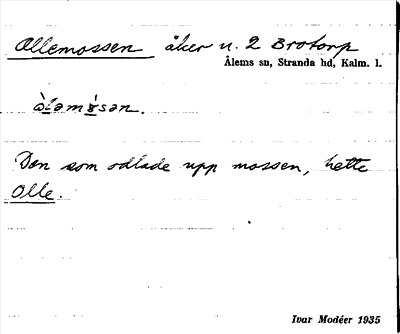 Ollemossen åker n. 2 Brotorp
Ålems sn, Stranda hd, Kalm. l.
òləmǿsən.
Den som odlade upp mossen, hette
Olle.
Ivar Modéer 1935